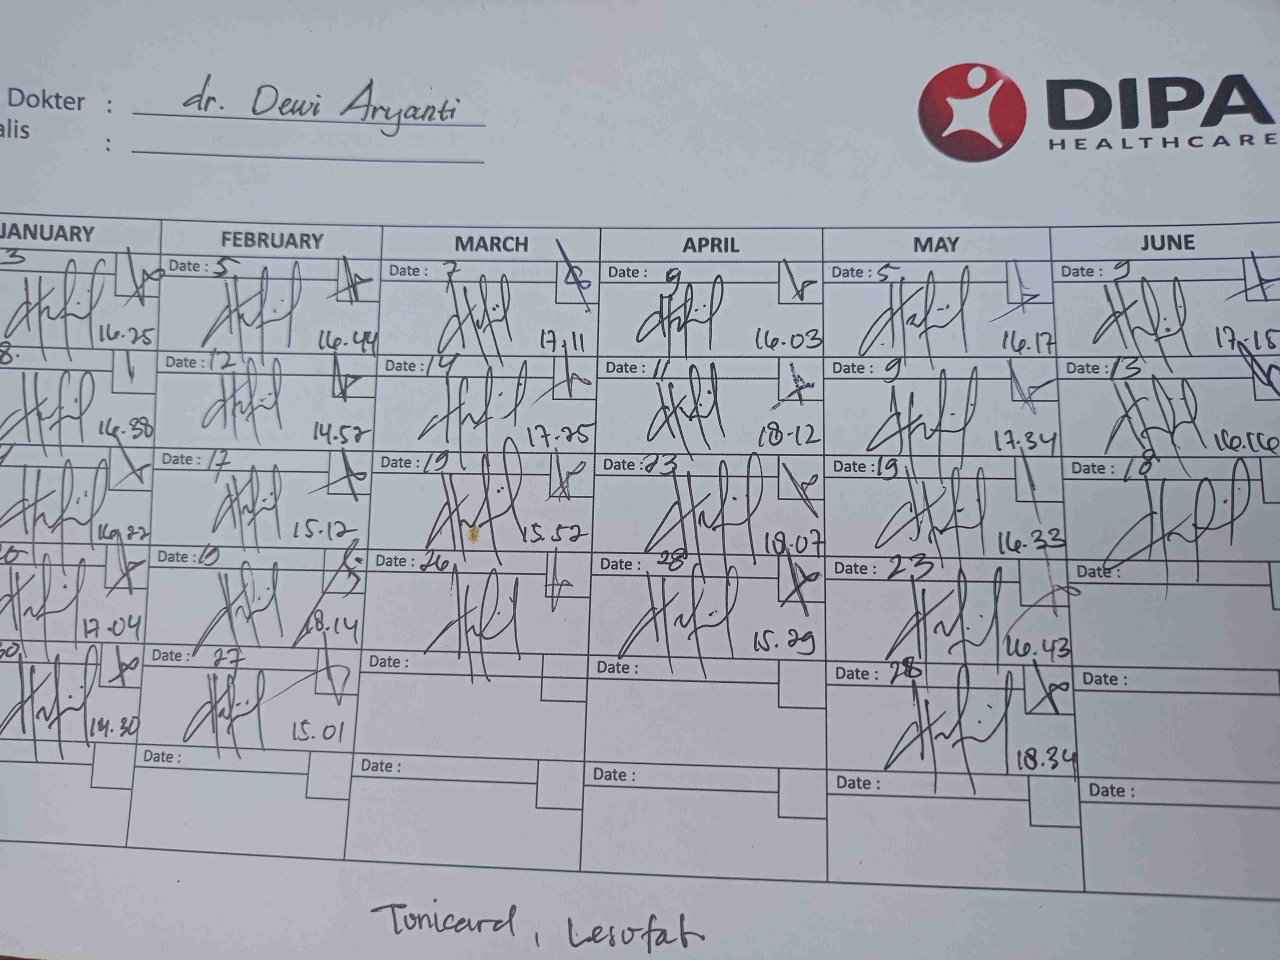 Dokter : dr. Dewi Aryanti
alis :
DIPA
HEALTHCARE
JANUARY FEBRUARY MARCH APRIL MAY JUNE
3 Date : 5 Date : 7 Date : 9 Date : 5 Date : 9
16.25 16.44 17.11 16.03 16.17 17.15
8. Date : 12 Date : 14 Date : 11 Date : 9 Date : 13
16.38 14.52 17.25 18.12 17.34 16.16
Date : 17 Date : 19 Date : 23 Date : 19 Date : 18
16.22 15.12 15.52 18.07 16.33
20 Date : 19 Date : 26 Date : 28 Date : 23 Date :
17.04 18.14 15.29 16.43
30 Date : 27 Date : Date : Date : 28 Date :
14.30 15.01 18.34
Date : Date : Date : Date : Date :
Tonicard, Lesofat